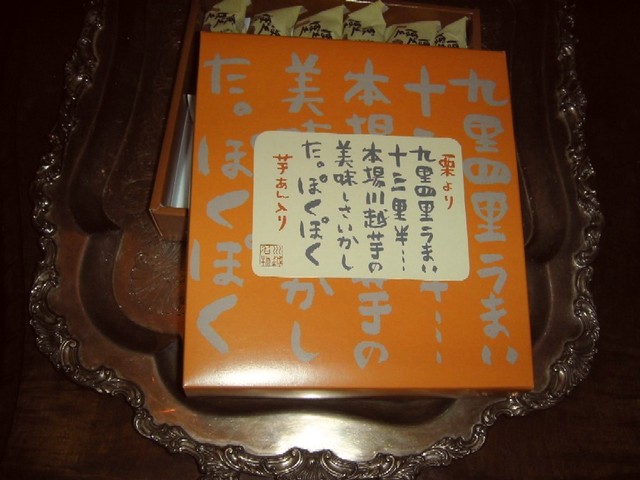 九里四里うまい
十三里半……
本場川越芋の
美味しさいかし
た。ぽくぽく
栗より
九里四里うまい
十三里半…
本場川越芋の
美味しさいかし
た。ぽくぽく
芋あん入り